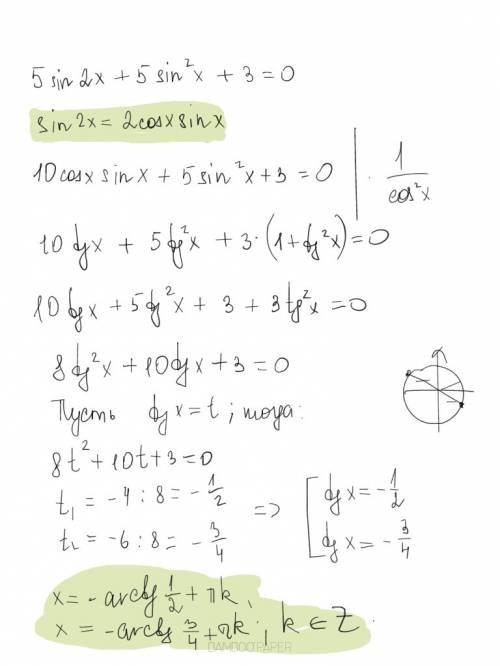 5 sin 2x + 5 sin²x + 3 = 0
sin 2x = 2cosx sinx
10 cosx sinx + 5 sin²x + 3 = 0 | · 1/cos²x
10 tgx + 5 tg²x + 3·(1 + tg²x) = 0
10 tgx + 5 tg²x + 3 + 3 tg²x = 0
8 tg²x + 10 tgx + 3 = 0
Пусть tg x = t; тогда:
8t² + 10t + 3 = 0
t₁ = -4 : 8 = -1/2
t₂ = -6 : 8 = -3/4
=> [ tg x = -1/2
tg x = -3/4
x = -arctg 1/2 + πk,
x = -arctg 3/4 + πk; k ∈ Z.
BAMBOO PAPER